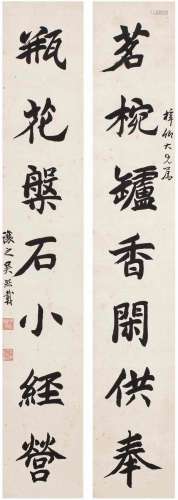 茗椀罏香閑供奉
瓶花槃石小經營
大兄屬
讓之吳熙載